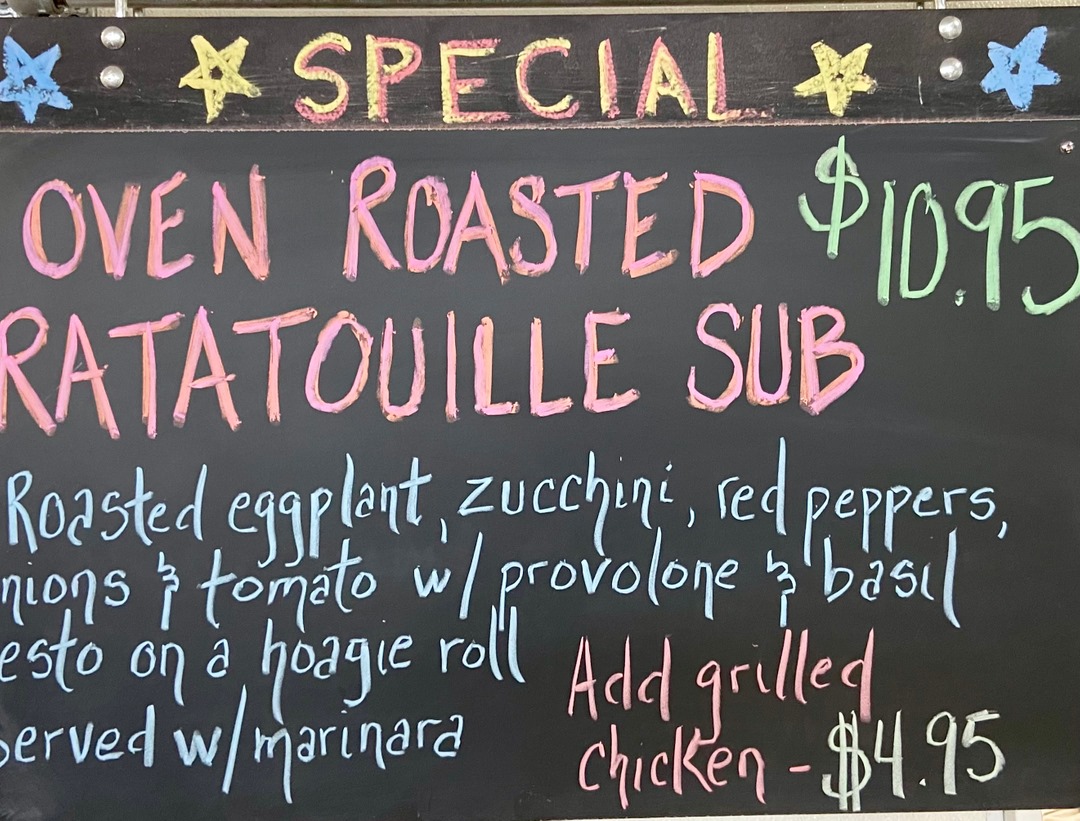 SPECIAL
OVEN ROASTED $10.95
RATATOUILLE SUB
Roasted eggplant, zucchini, red peppers,
nions & tomato w/ provolone & basil
esto on a hoagie roll
served w/ marinara
Add grilled
chicken - $4.95